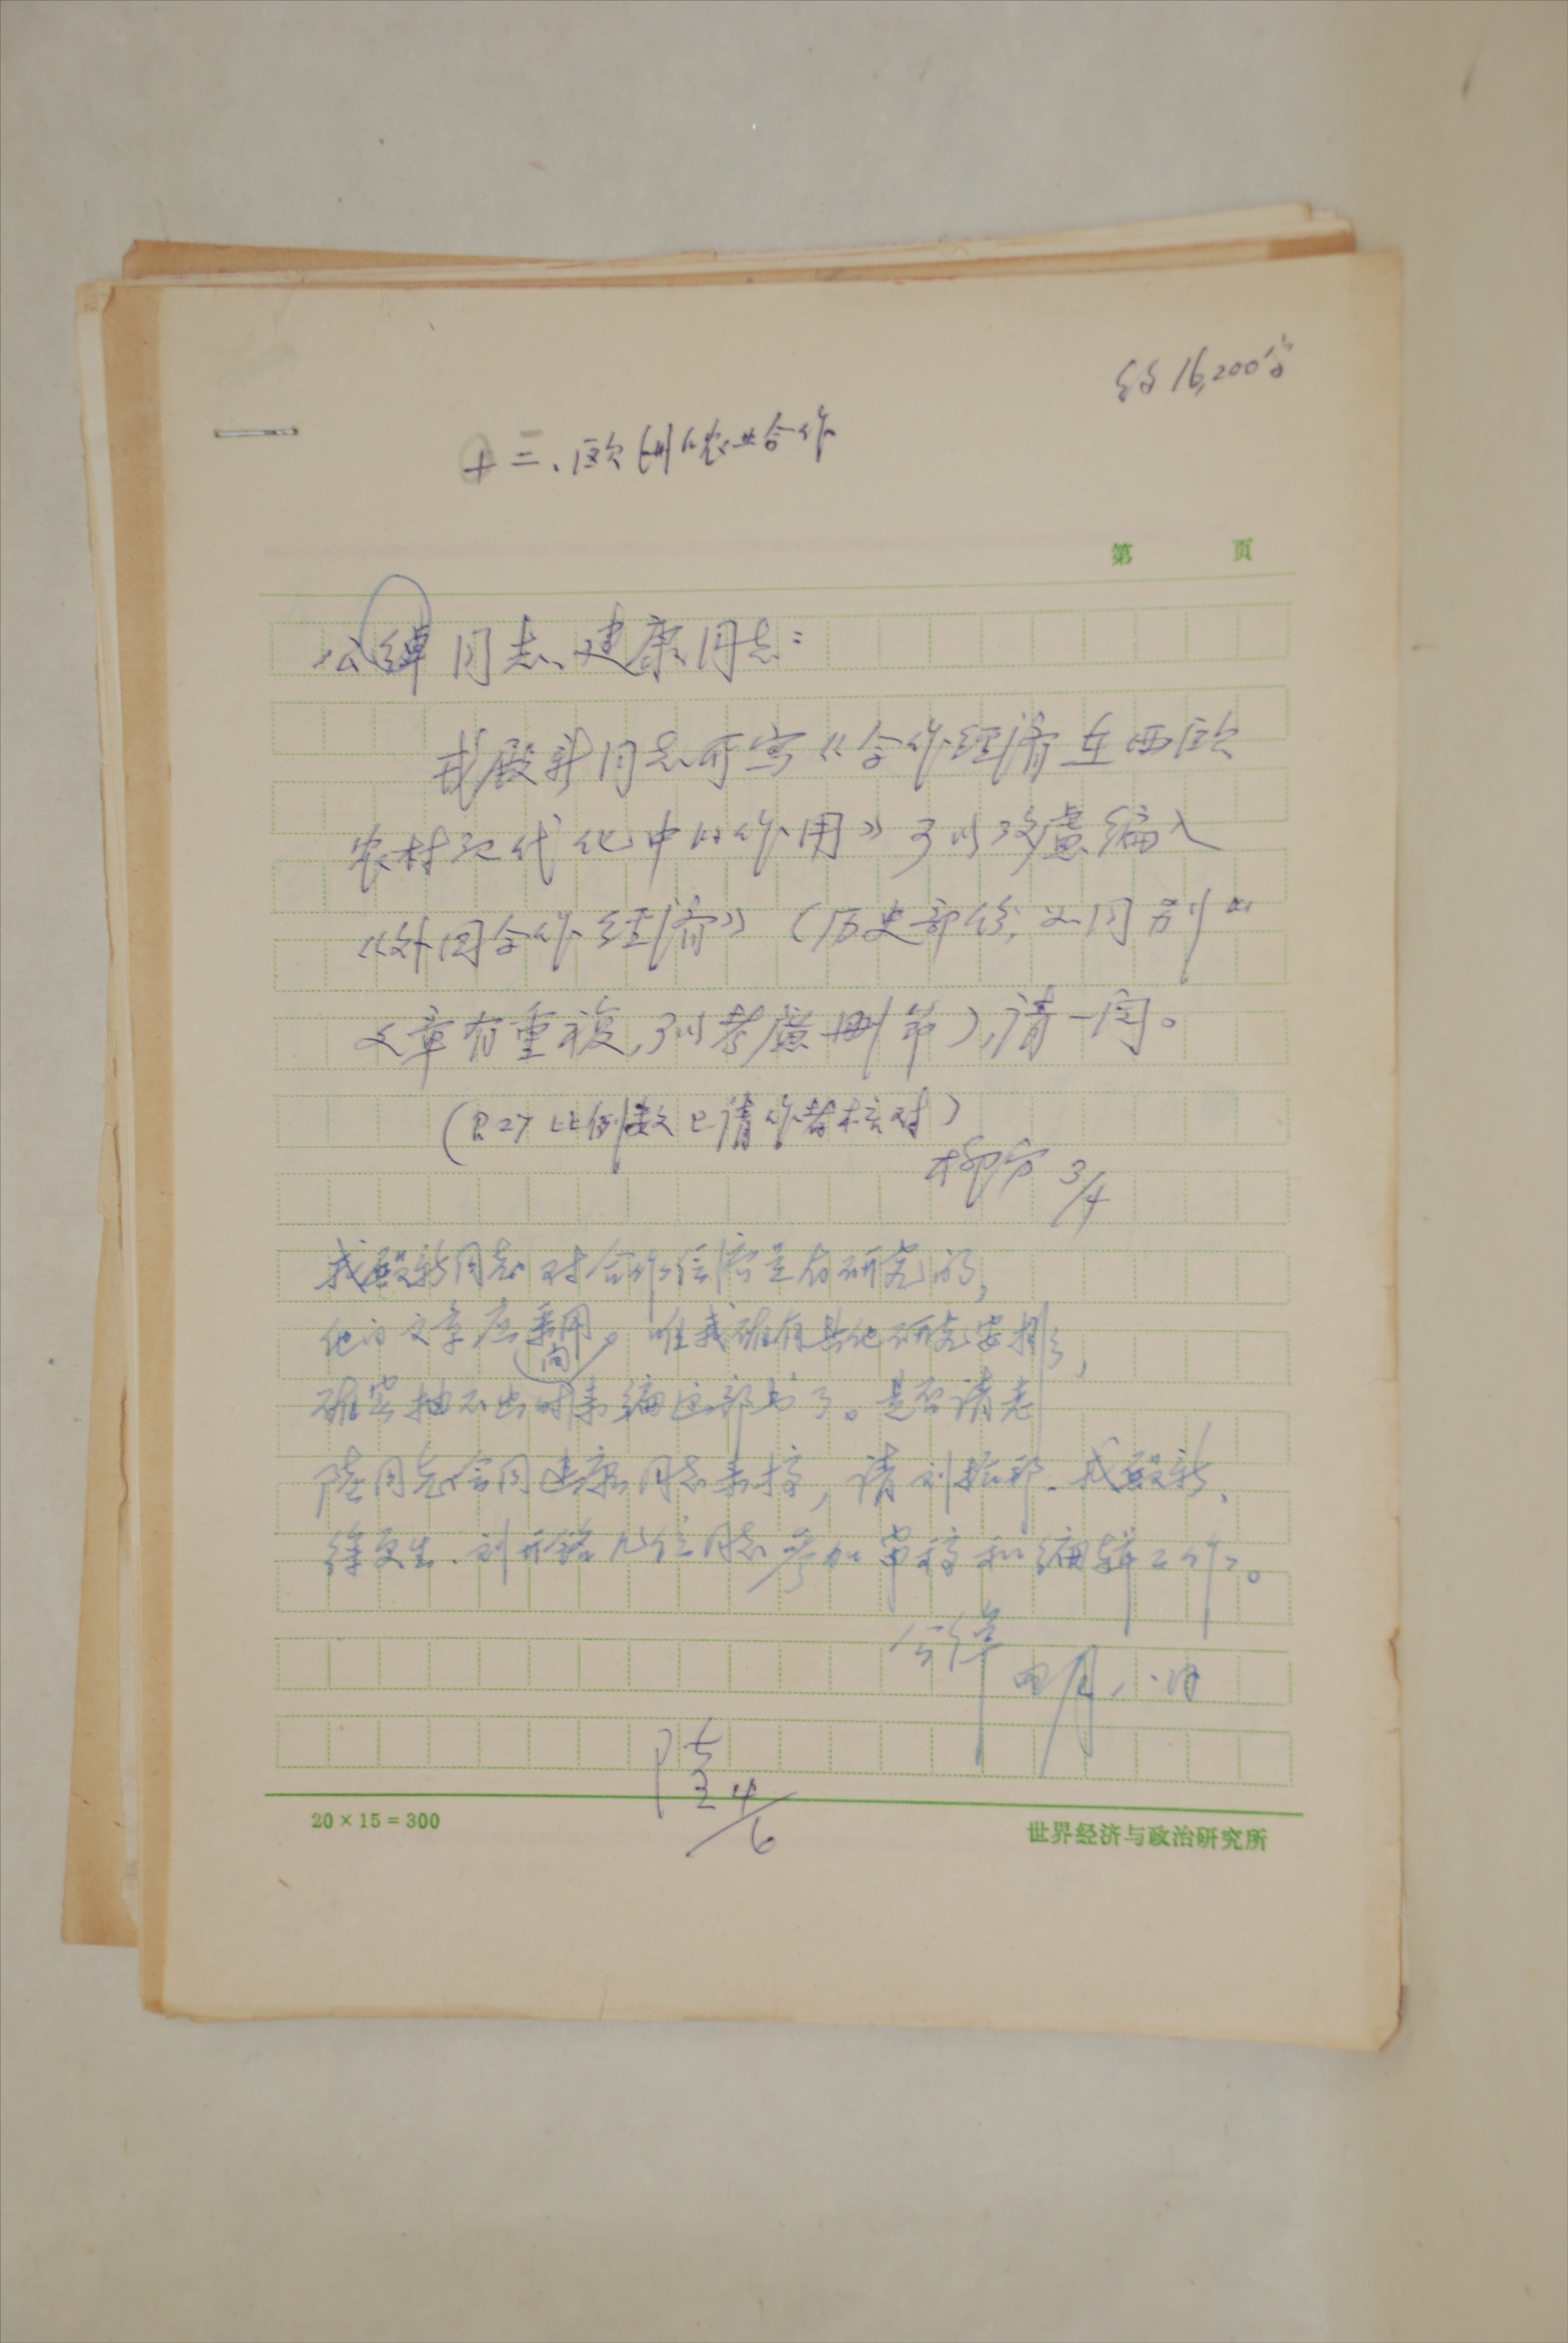 约16,200字
十三、欧洲的农业合作
第 页
公绰同志、建康同志：
戎殿新同志所写《合作经济在西欧
农村现代化中的作用》可以考虑编入
《外国合作经济》（历史部份，如同别的
文章有重复，可以考虑删节），请一阅。
（P.27比例数已请作者核对）
3/4
戎殿新同志对合作经济是有研究的，
他的文章应采用。唯我确有其他研究安排，
确实抽不出时间来编这部书了。是否请老
陆同志会同建康同志来搞，请刘振邦、戎殿新、
徐更生、刘开铭几位同志参加审稿和编辑工作。
公绰 四月八日
陆 4/6
20×15=300
世界经济与政治研究所